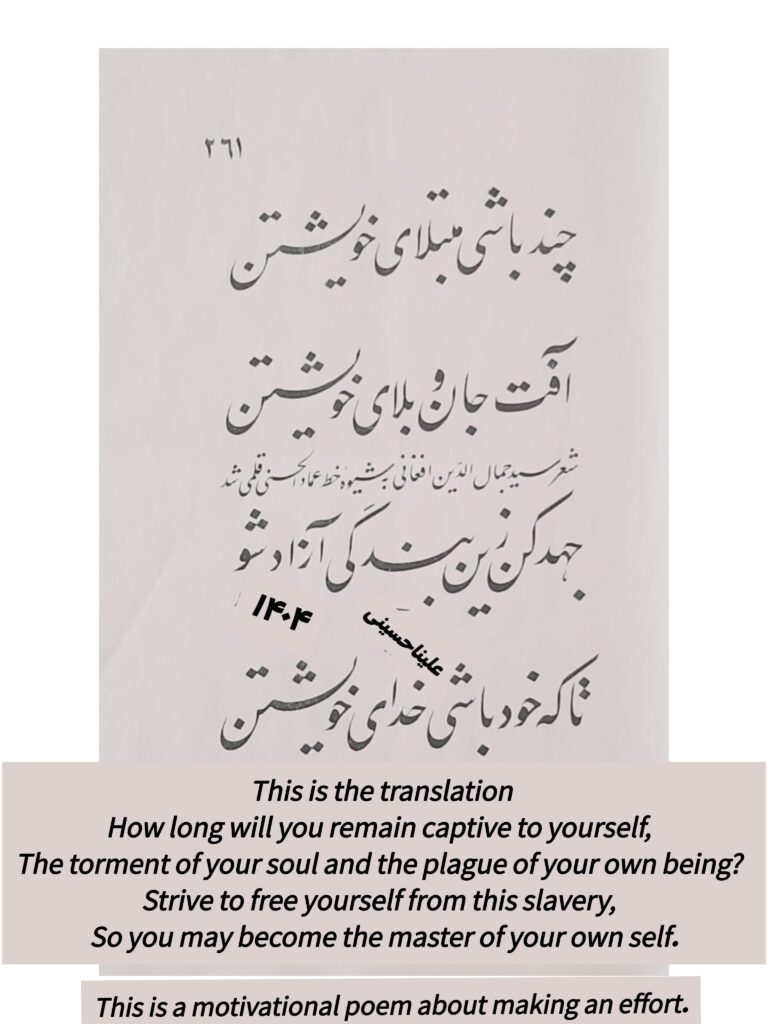 ۲۶۱
چند باشی مبتلای خویشتن
آفت جان و بلای خویشتن
شعر سید جمال الدین افغانی به شیوهٔ خط عماد الحسنی قلمی شد
جهد کن زین بندگی آزاد شو
۱۴۰۴
علیناحسینی
تا که خود باشی خدای خویشتن
This is the translation
How long will you remain captive to yourself,
The torment of your soul and the plague of your own being?
Strive to free yourself from this slavery,
So you may become the master of your own self.
This is a motivational poem about making an effort.